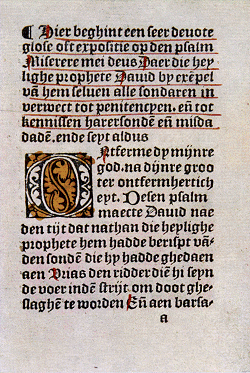 ¶ Hier beghint een seer deuote
glose oft expositie op den psalm
Miserere mei deus Daer die hey
lighe prophete Dauid by exēpel
vā hem seluen alle sondaren in
verwect tot penitencyen. eñ tot
kennissen harer sondē eñ misda
dadē. ende seyt aldus
Ontferme dy mijnre
god. na dijnre groo
ter ontfermhertich
eyt. Desen psalm
maecte Dauid nae
den tijt dat nathan die heylighe
prophete hem hadde berispt vā
den sondē die hy hadde ghedaen
aen Vrias den ridder diē hi seyn
de voer indē strijt om doot ghe
slaghē te worden Eñ aen barsa-
a